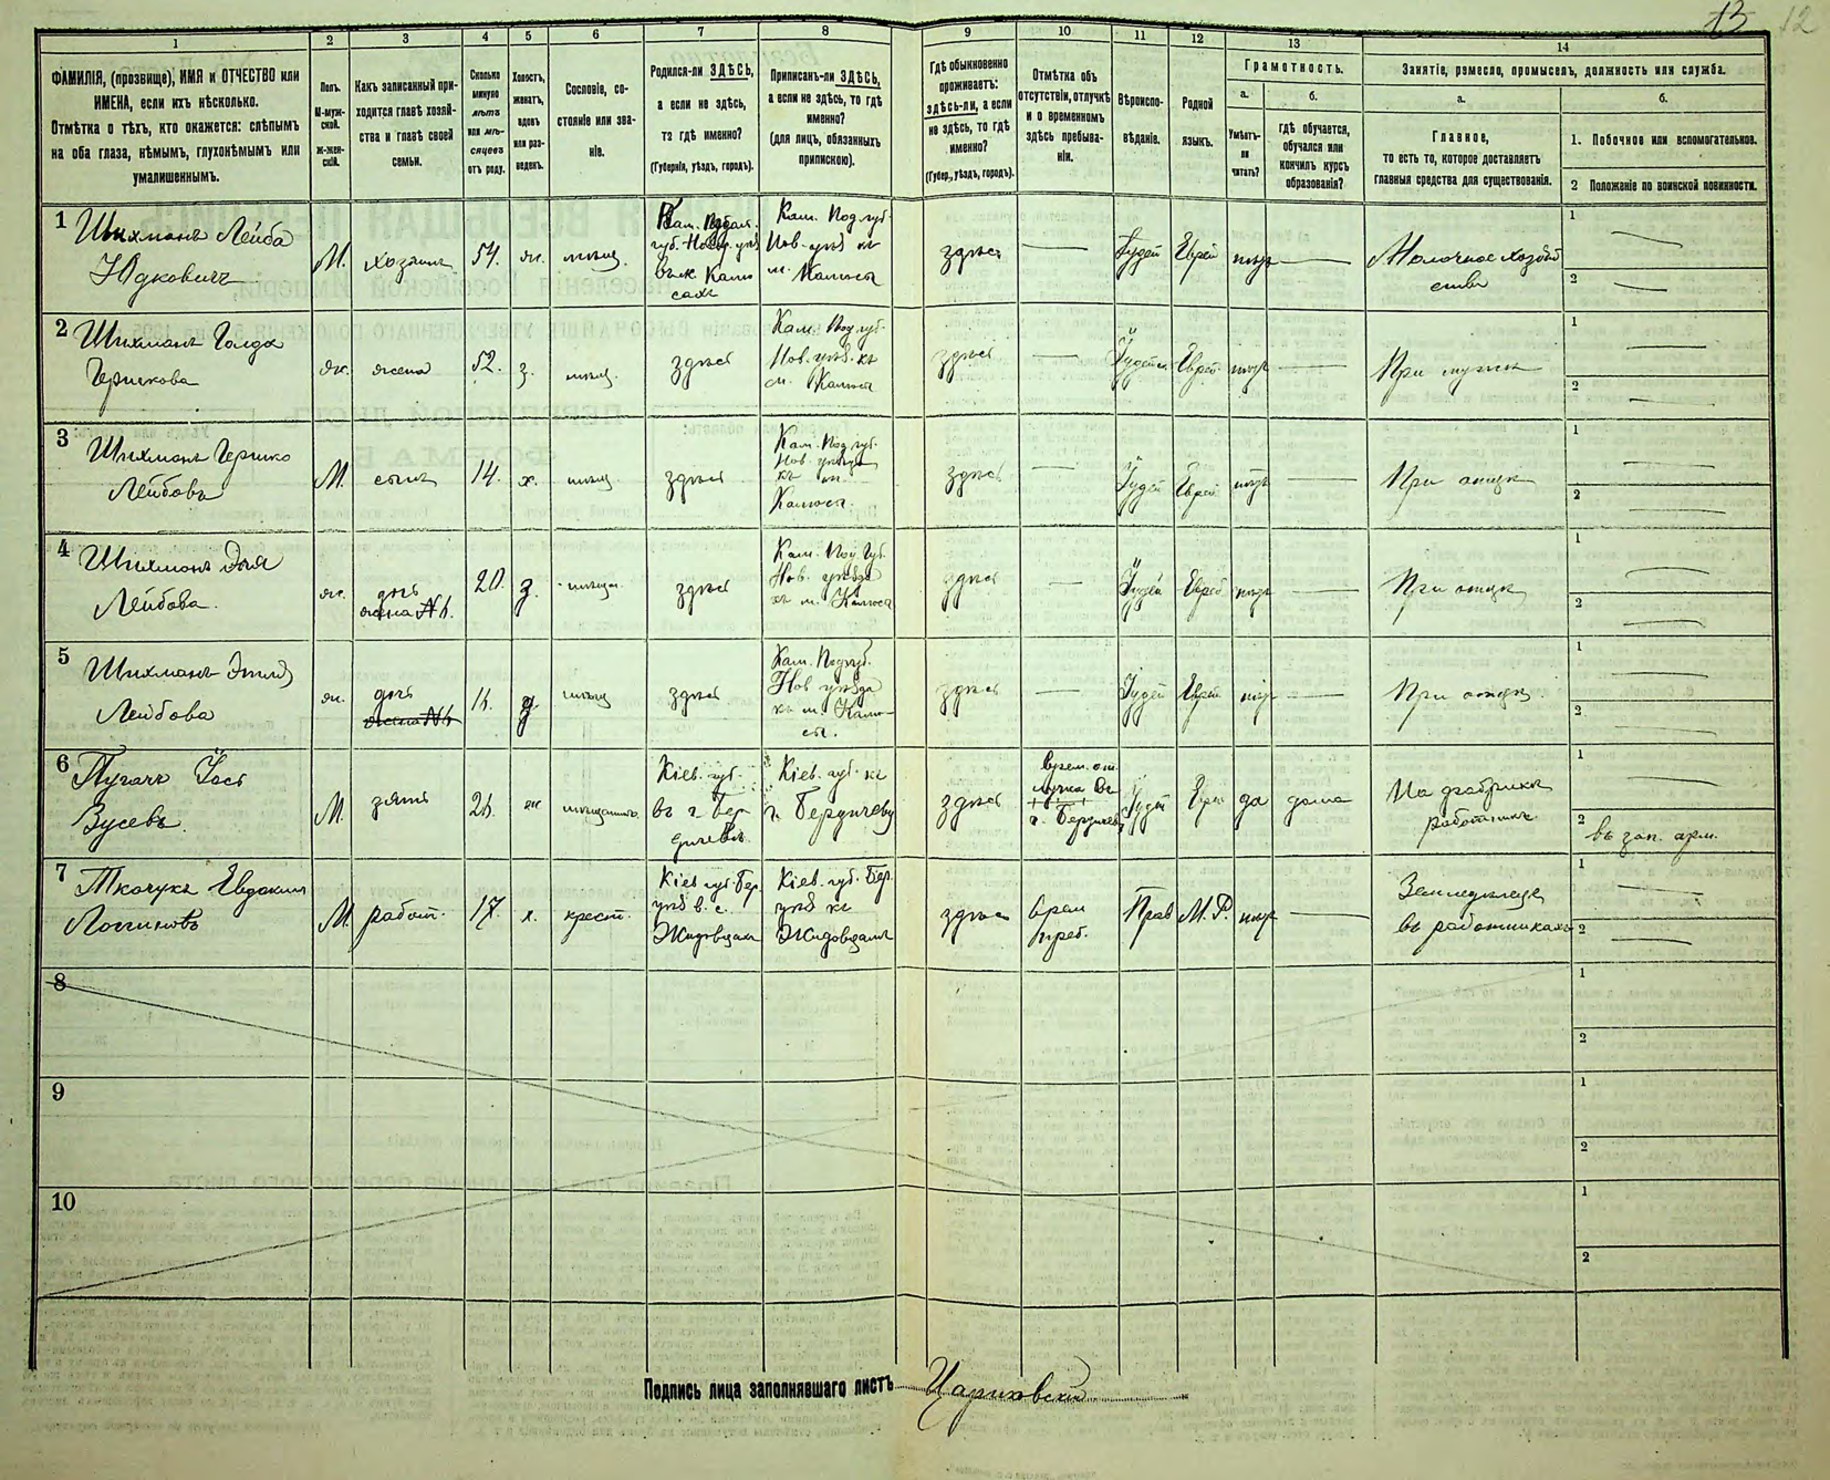 13 12
1 2 3 4 5 6 7 8 9 10 11 12 13 14
ФАМИЛІЯ, (прозвище), ИМЯ и ОТЧЕСТВО или
ИМЕНА, если ихъ нѣсколько.
Отмѣтка о тѣхъ, кто окажется: слѣпымъ
на оба глаза, нѣмымъ, глухонѣмымъ или
умалишеннымъ.
Полъ.
М-муж-
ской.
Ж-жен-
скій.
Какъ записанный при-
ходится главѣ хозяй-
ства и главѣ своей
семьи.
Сколько
минуло
лѣтъ
или мѣ-
сяцевъ
отъ роду.
Холостъ,
женатъ,
вдовъ
или раз-
веденъ.
Сословіе, со-
стояніе или зва-
ніе.
Родился-ли ЗДѢСЬ,
а если не здѣсь,
то гдѣ именно?
(Губернія, уѣздъ, городъ).
Приписанъ-ли ЗДѢСЬ,
а если не здѣсь, то гдѣ
именно?
(для лицъ, обязанныхъ
припискою).
Гдѣ обыкновенно
проживаетъ:
здѣсь-ли, а если
не здѣсь, то гдѣ
именно?
(Губер., уѣздъ, городъ).
Отмѣтка объ
отсутствіи, отлучкѣ
и о временномъ
здѣсь пребыва-
ніи.
Вѣроиспо-
вѣданіе.
Родной
языкъ.
Грамотность.
а.
Умѣетъ-
ли
читать?
б.
гдѣ обучается,
обучался или
кончилъ курсъ
образованія?
Занятіе, ремесло, промыселъ, должность или служба.
а.
Главное,
то есть то, которое доставляетъ
главныя средства для существованія.
б.
1. Побочное или вспомогательное.
2 Положеніе по воинской повинности.
1 Шихманъ Лейба
Юдковичъ
М. хозяинъ 54. ж. мѣщ.
губ.
Кам. Под. губ.
Нов. уѣз. къ
м. Калюса
здѣсь
Іудей Еврей
Молочное хозяй
ство
1
2
2 Шихманъ Голда
Гершкова
ж. жена 52. з. мѣщ. здѣсь
Кам. Под. губ.
Нов. уѣз. къ
м. Калюса
здѣсь
Еврей
При мужѣ
1
2
3 Шихманъ Гершко
Лейбовъ
М. сынъ 14. х. мѣщ. здѣсь
Кам. Под. губ.
Нов. уѣзда
къ м.
Калюса.
здѣсь
Іудей Еврей
При отцѣ
1
2
4 Шихманъ
Лейбова.
ж. дочь
жена №6.
20. з. здѣсь
Кам. Под. Губ.
Нов. уѣзда
къ м. Калюса
здѣсь
Іудей Еврей
При отцѣ
1
2
5 Шихманъ
Лейбова
ж. дочь
жена №6
з. мѣщ здѣсь
Кам. Под. губ.
Нов уѣзда
къ м. Калю-
сы.
здѣсь
Іудей Еврей
При отцѣ
1
2
6 Пугачъ
Зусевъ
М. зять ж
Кіев. губ.
въ г. Бер
дичевѣ
Кіев. губ. къ
г. Бердичеву
здѣсь
врем. от
лучка въ
г. Бердичевъ
Іудей Евр да дома
На фабрикѣ
работникъ
1
2 въ зап. арм.
7 Ткачукъ Евдокимъ
Логиновъ
М. работ. 17. х. крест.
Кіев губ. Бер.
уѣз в. с.
Жидовцахъ
Кіев. губ. Бер.
уѣз къ
Жидовцамъ
здѣсь
врем
преб.
Прав М. Р.
Земледѣлецъ
въ работникахъ
1
2
8
1
2
9
1
2
10
1
2
Подпись лица заполнявшаго листъ